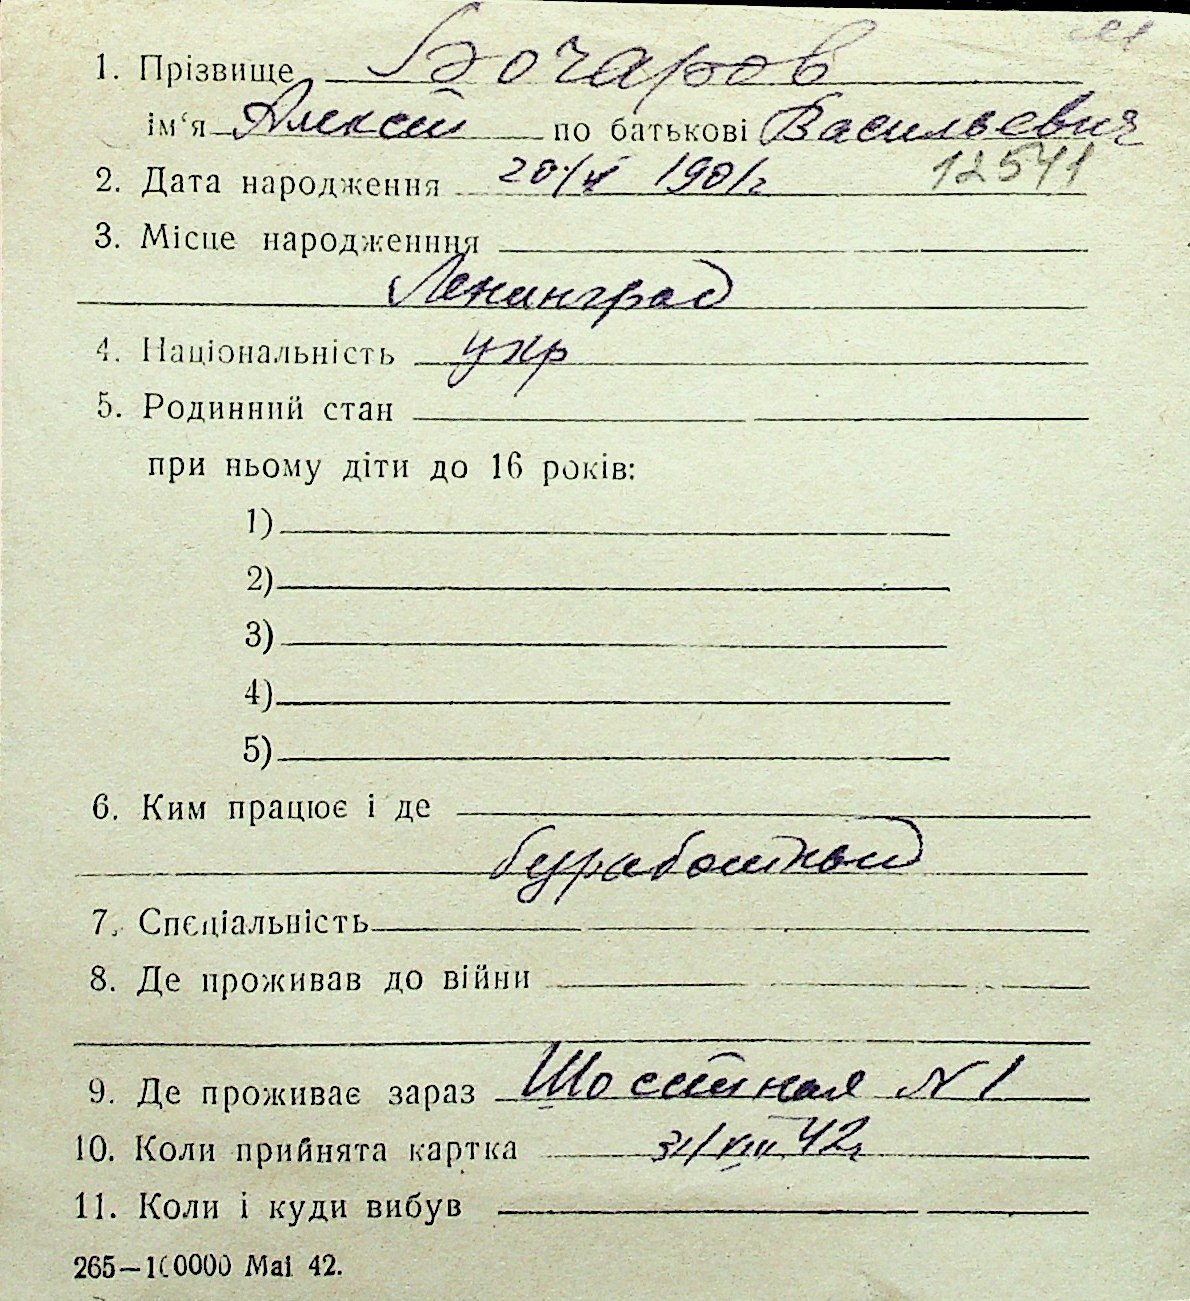 1. Прізвище Бочаров
ім'я Алексей по батькові Васильевич
2. Дата народження 20/ 1901г 12541
3. Місце народженння
Ленинград
4. Національність укр
5. Родинний стан
при ньому діти до 16 років:
1)
2)
3)
4)
5)
6. Ким працює і де
7. Спеціальність
8. Де проживав до війни
9. Де проживає зараз N 1
10. Коли прийнята картка 31/VIII 42г
11. Коли і куди вибув
265—100000 Mai 42.